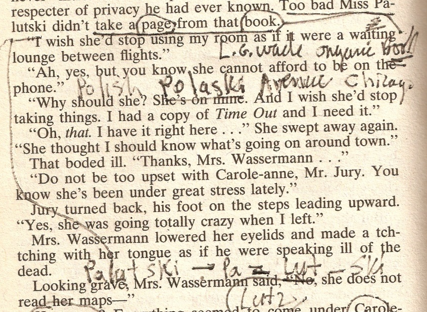 respecter of privacy he had ever known. Too bad Miss Pa-
lutski didn't take a page from that book.
"I wish she'd stop using my room as if it were a waiting
L.G. wade organic book
lounge between flights."
"Ah, yes, but you know she cannot afford to be on the
phone." Polish Polaski Avenue Chicago
"Why should she? She's on mine. And I wish she'd stop
taking things. I had a copy of Time Out and I need it."
"Oh, that. I have it right here . . ." She swept away again.
"She thought I should know what's going on around town."
That boded ill. "Thanks, Mrs. Wassermann . . ."
"Do not be too upset with Carole-anne, Mr. Jury. You
know she's been under great stress lately."
Jury turned back, his foot on the steps leading upward.
"Yes, she was going totally crazy when I left."
Mrs. Wassermann lowered her eyelids and made a tch-
tching with her tongue as if he were speaking ill of the
dead.
Palutski → Pa = Lut - Ski
Looking grave, Mrs. Wassermann said, "No, she does not
read her maps—"
(Lutz
Everything seemed to come under Carole-